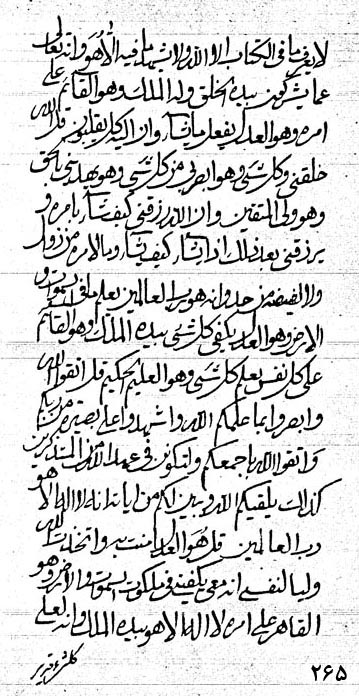 لا يعزب ما في الكتاب الا الله ولا يشهد ما فيه الا هو وانه تعالى
عما يشركون بيده الخلق وله الملك وهو القائم على
امره وهو العدل يفعل ما يشاء وان اليه كل يقلبون قل الله
خلقني وكل شيء وهو ابصر بي من كل شيء وهو يهديني بالحق
وهو ولي المتقين وان الله رزقني كيف شاء بامره و
يرزقني بعد ذلك اذا يشاء كيف يشاء وما لامره من زوال
ولا لفيضه من حد وانه هو رب العالمين يعلم ما في السموات و
الارض وهو العدل يكفي كل شيء بيده الملك وهو القائم
على كل نفس يعلم كل شيء وهو العليم الحكيم قل اتقوا الله
وابصروا بما علمكم الله واشهدوا على بصيرة من ربكم
واتقوا الله باجمعكم ولتكونن في عهد الله من المتذكرين
كذلك يلقيكم الله وبينكم من اياته انه لا اله الا هو
رب العالمين قل هو العدل امنت به واتخذت الله
وليا لنفسي انه معي يكفيني في ملكوت السموات والارض وهو
القاهر على امره لا اله الا هو بيده الملك وانه لعلى
كل شيء قدير
٢۶۵